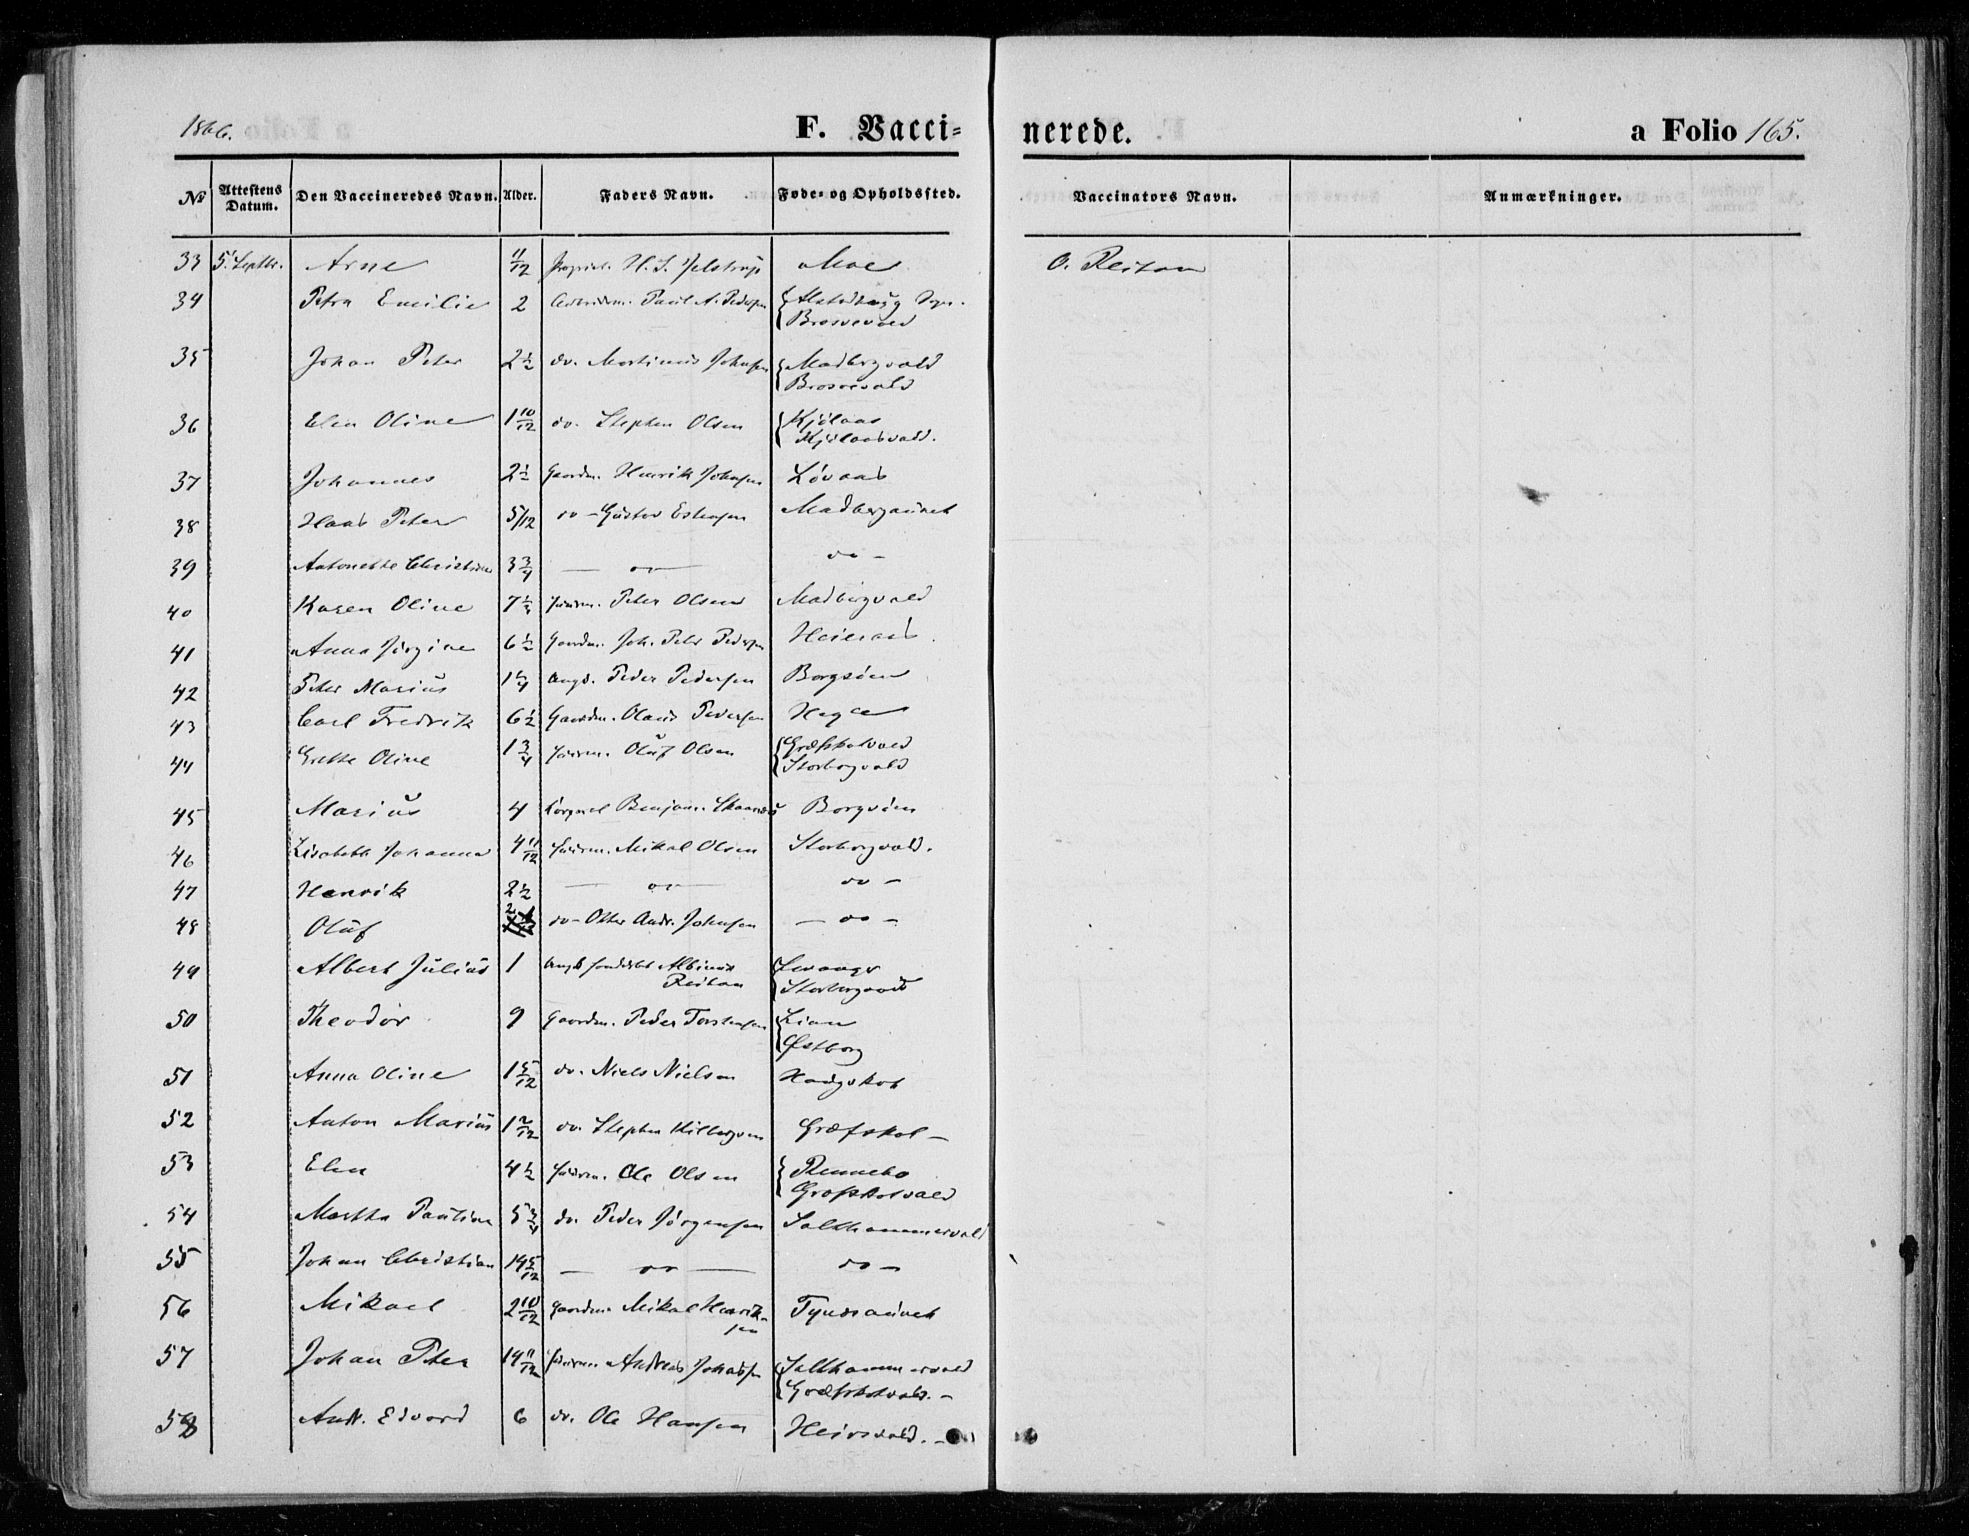 1866.
F. Vacci=
nerede.
a Folio 165.
№ Attestens Datum. Den Vaccineredes Navn. Alder. Faders Navn. Føde- og Opholdssted. Vaccinators Navn. Anmærkninger.
33 5. Septbr. Arne 11/12 Propriet. H. S. Jelstrup Moe O. Reitan
34 Petra Emilie 2 Paul A. Pedersen
35 Johan Peter 2½ do. Martinus Johnsen { Madbergvald
36 Elen Oline 1 10/12 do. Stephen Olsen { Kjölaas
Kjölaasvald.
37 Johannes 2½ Gaardm. Henrik Johnsen Lövaas
38 Hans Peter 5/12 do - Gustav Estensen Madbergaunet
39 Antonette Christine 3¾ — do — do -
40 Karen Oline 7½ Huusm. Peter Olsen Madbergvald
41 Anna Jörgine 6½ Gaardm. Joh. Peter Pedersen
42 Peter Marius 1¼ Ungk. Peder Pedersen Borgsöen
43 Carl Fredrik 6½ Gaardm. Olaus Pedersen
44 Grethe Oline 1¾ Huusm. Oluf Olsen { Græfskotvald
Storborgvald
45 Marius 4 Benjam. Borgsöen
46 Lisabeth Johanna 4 11/12 Huusm. Mikal Olsen Storborgvald.
47 Henrik 2½ — do — do -
48 Oluf 2 do - Otter Andr. Johnsen — do -
49 Albert Julius 1 Albinus { Levanger
Reitan
50 Theodor 9 Gaardm. Peder Torstensen { Lian
Østborg
51 Anna Oline 1 5/12 do. Niels Nielsen
52 Anton Marius 1 2/12 do. Stephen Græfskot -
53 Elen 4½ Huusm. Ole Olsen { Rennebo
Græfskotvald
54 Martha Paulina 5¾ do. Peder Jörgensen Salthammervald
55 Johan Christian 14 5/12 — do — do -
56 Mikael 2 10/12 Gaardm. Mikal Henrik-
sen
57 Johan Peter 14 11/12 Huusm. Andreas { Salthammervald
Græfskotvald. -
58 Andr. Edvard 6 do. Ole Hansen